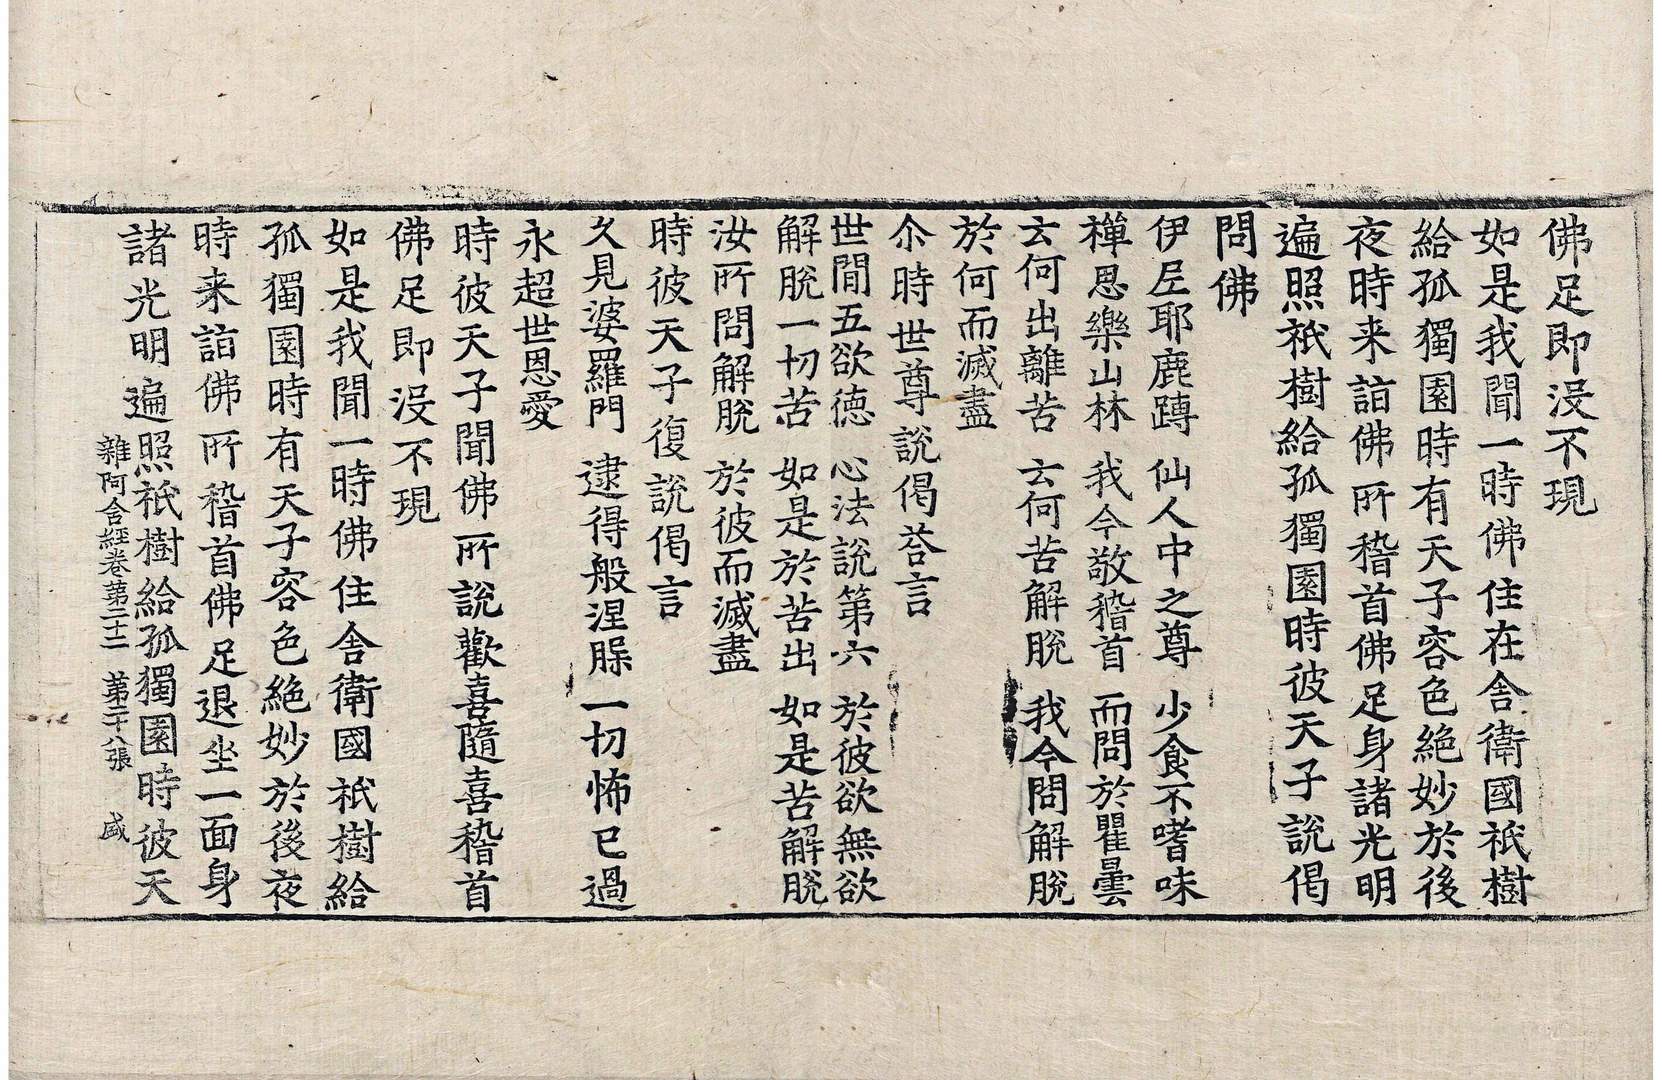 佛足即没不現
如是我聞一時佛住在舍衛國祇樹
給孤獨園時有天子容色絶妙於後
夜時来詣佛所稽首佛足身諸光明
遍照祇樹給孤獨園時彼天子說偈
問佛
伊尼耶鹿䏝 仙人中之尊 少食不嗜味
禪思樂山林 我今敬稽首 而問於瞿曇
云何出離苦 云何苦解脫 我今問解脫
於何而滅盡
尒時世尊說偈荅言
世間五欲德 心法說第六 於彼欲無欲
解脫一切苦 如是於苦出 如是苦解脫
汝所問解脫 於彼而滅盡
時彼天子復說偈言
久見婆羅門 逮得般涅槃 一切怖已過
永超世恩愛
時彼天子聞佛所說歡喜隨喜稽首
佛足即没不現
如是我聞一時佛住舍衛國祇樹給
孤獨園時有天子容色絶妙於後夜
時来詣佛所稽首佛足退坐一面身
諸光明遍照祇樹給孤獨園時彼天
雜阿含經卷第二十二 第二十八張 盛